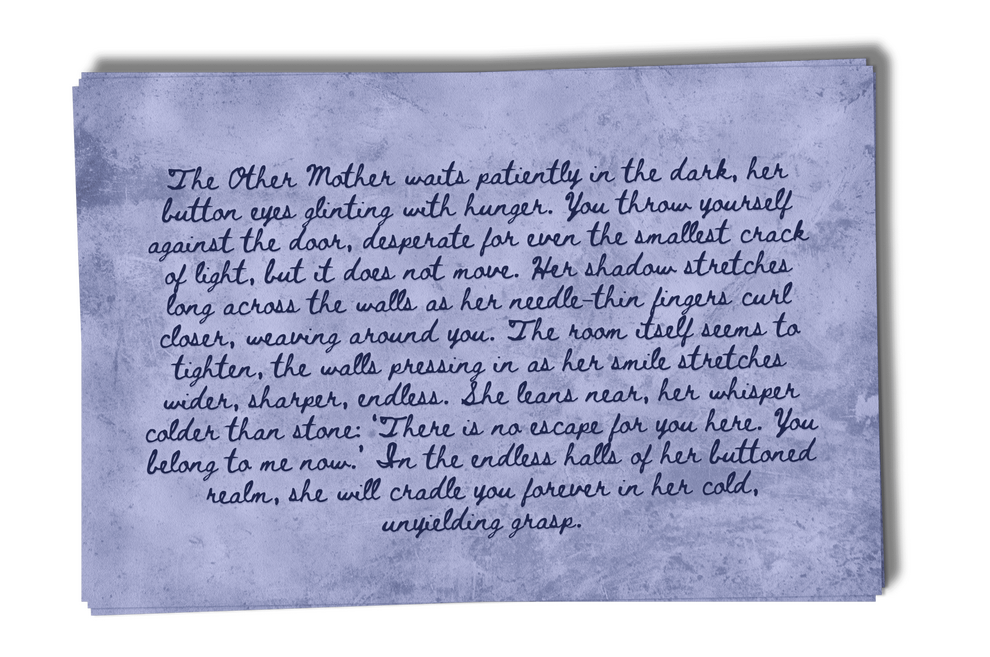 The Other Mother waits patiently in the dark, her
button eyes glinting with hunger. You throw yourself
against the door, desperate for even the smallest crack
of light, but it does not move. Her shadow stretches
long across the walls as her needle-thin fingers curl
closer, weaving around you. The room itself seems to
tighten, the walls pressing in as her smile stretches
wider, sharper, endless. She leans near, her whisper
colder than stone: 'There is no escape for you here. You
belong to me now.' In the endless halls of her buttoned
realm, she will cradle you forever in her cold,
unyielding grasp.